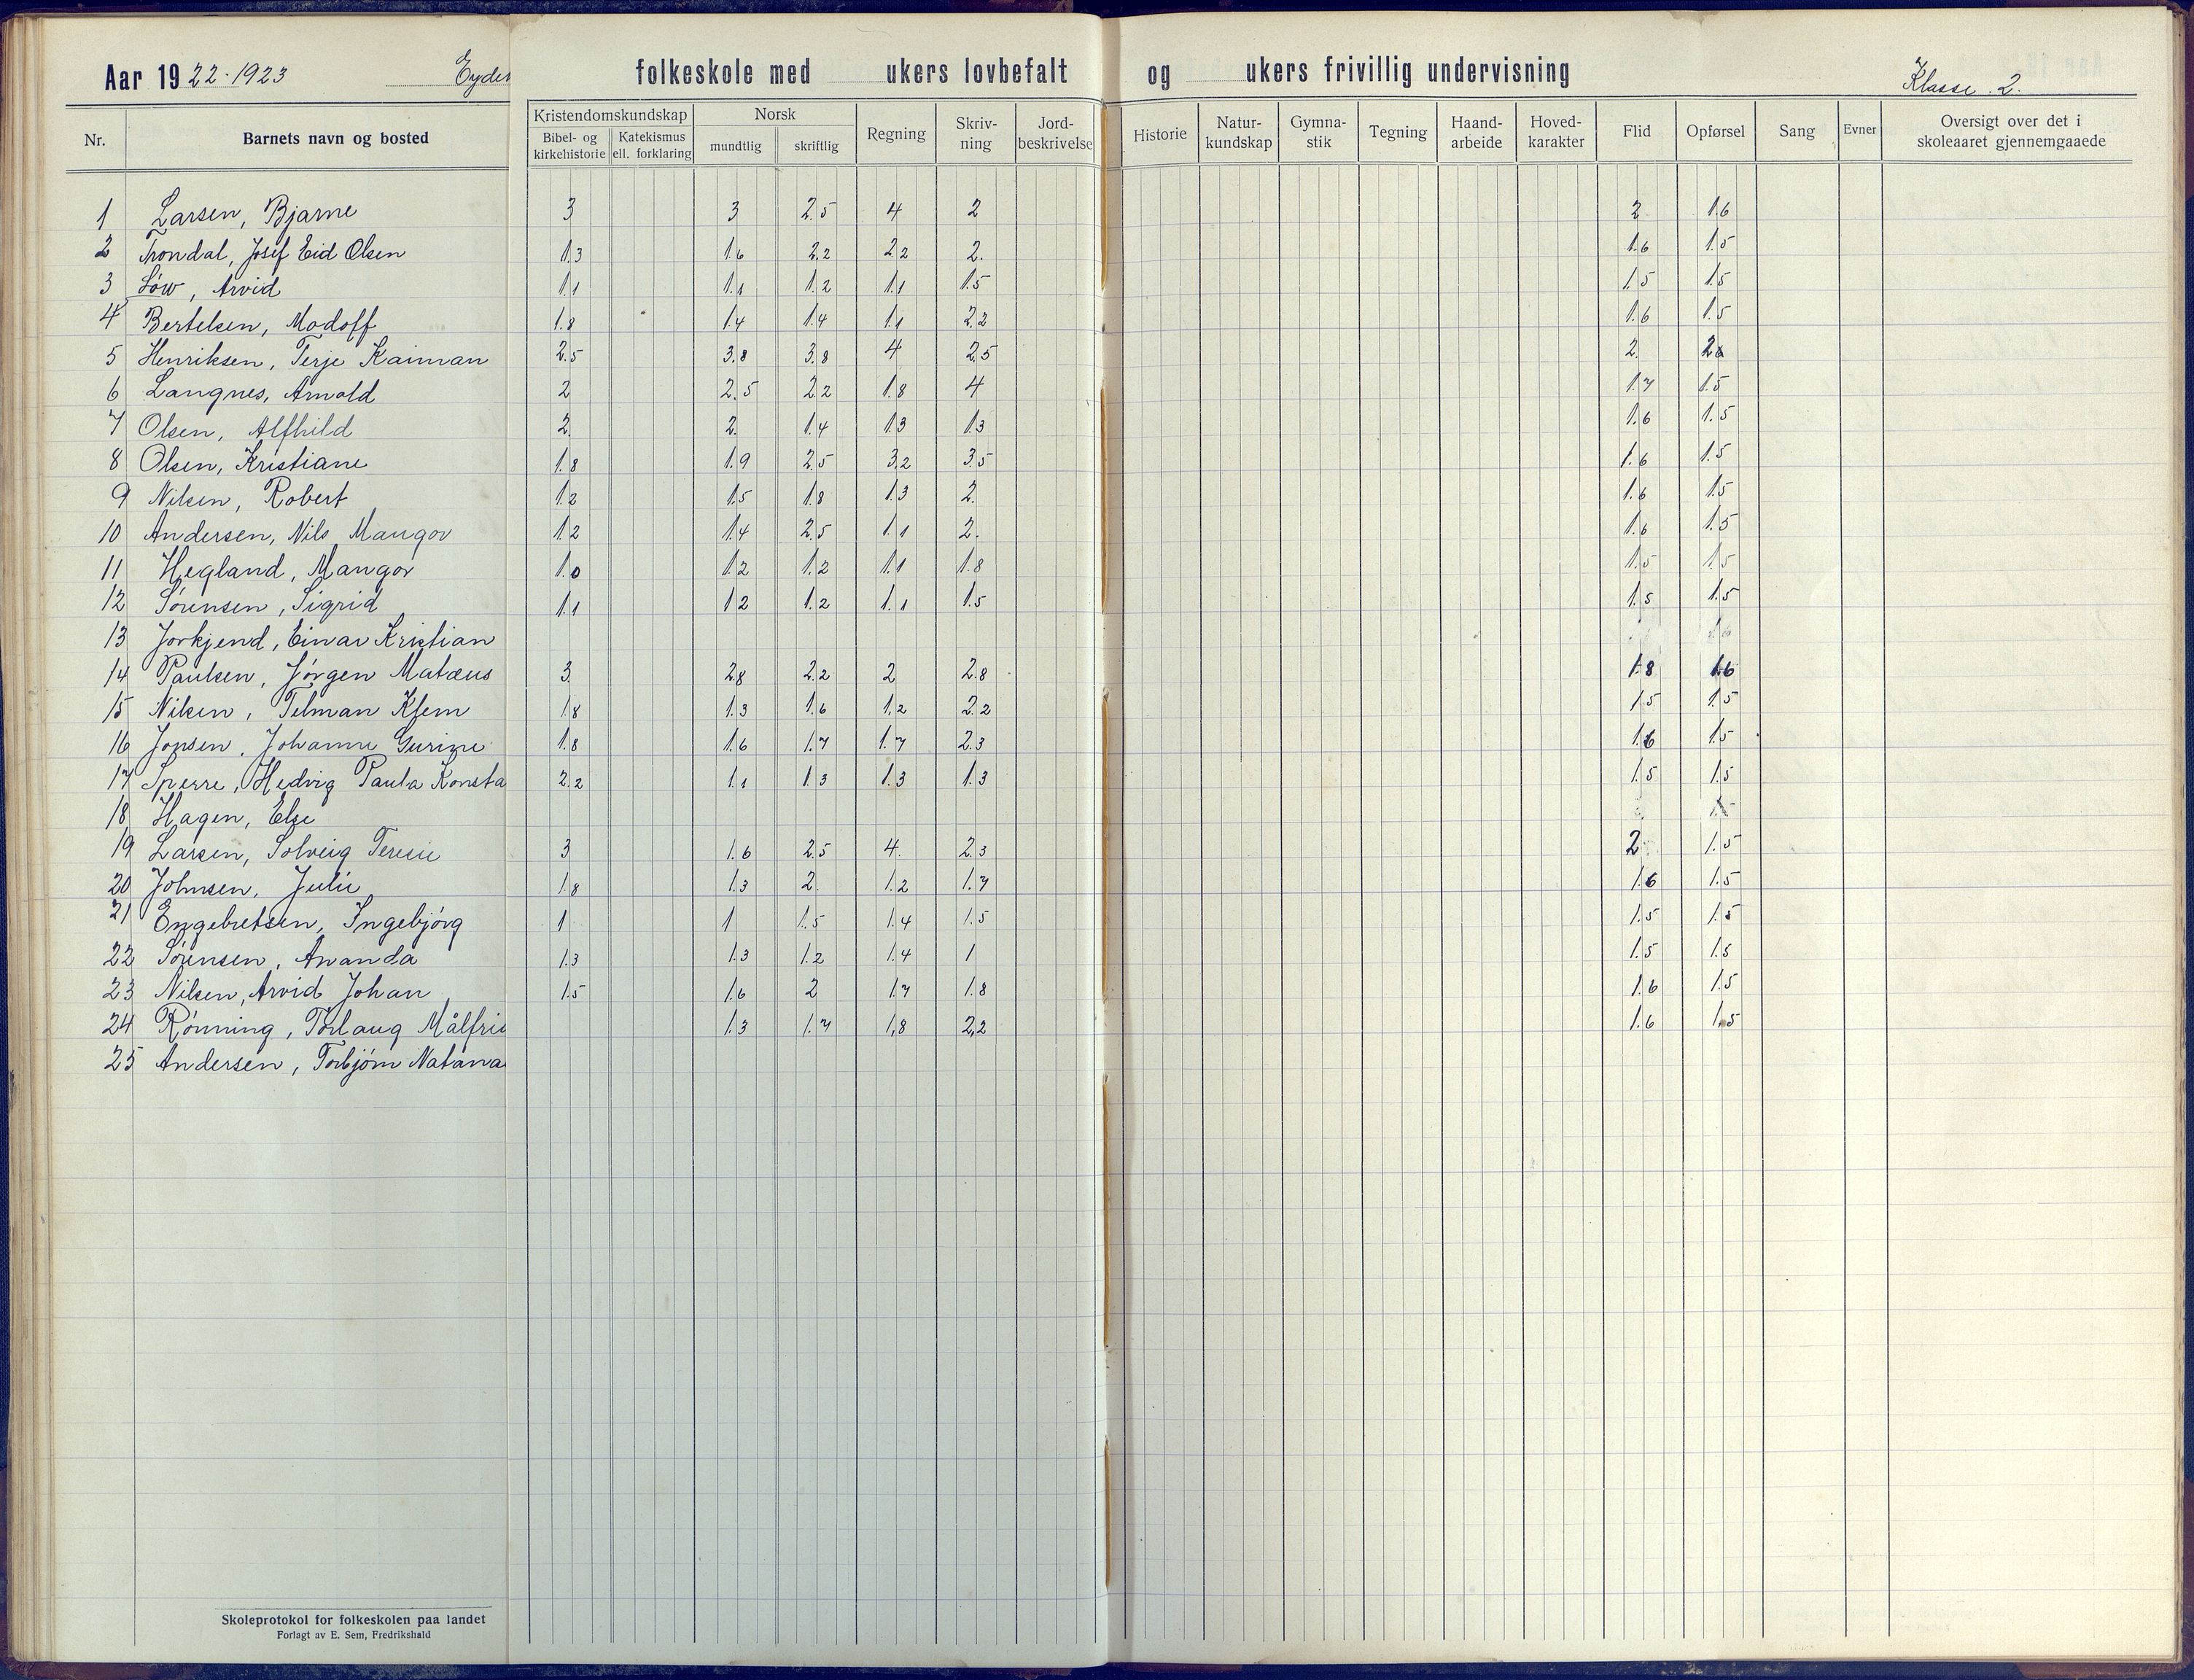 Aar 1922-1923 Eyde folkeskole med ukers lovbefalt og ukers frivillig undervisning Klasse 2.
Nr. Barnets navn og bosted Kristendomskundskap Bibel- og kirkehistorie Katekismus ell. forklaring Norsk mundtlig skriftlig Regning Skriv-ning Jord-beskrivelse Historie Natur-kundskap Gymna-stik Tegning Haand-arbeide Hoved-karakter Flid Opførsel Sang Evner Oversigt over det i skoleaaret gjennemgaaede
1 Larsen, Bjarne 3 3 2.5 4 2 2 1.6
2 Trondal, Josef Eid Olsen 1.3 1.6 2.2 2.2 2. 1.6 1.5
3 Löw, Arvid 1.1 1.1 1.2 1.1 1.5 1.5 1.5
4 Bertelsen, Modoff 1.8 1.4 1.4 1.1 2.2 1.6 1.5
5 Henriksen, Terje Kaiman 2.5 3.8 3.8 4 2.5 2.
6 Langnes, Arnold 2 2.5 2.2 1.8 4 1.7 1.5
7 Olsen, Alfhild 2. 2. 1.4 1.3 1.3 1.6 1.5
8 Olsen, Kristiane 1.8 1.9 2.5 3.2 3.5 1.6 1.5
9 Nilsen, Robert 1.2 1.5 1.8 1.3 2. 1.6 1.5
10 Andersen, Nils Mangor 1.2 1.4 2.5 1.1 2. 1.6 1.5
11 Hegland, Mangor 1.0 1.2 1.2 1.1 1.8 1.5 1.5
12 Sörensen, Sigrid 1.1 1.2 1.2 1.1 1.5 1.5 1.5
13 Jorkjend, Einar Kristian
14 Paulsen, Jörgen Matæus 3. 2.8 2.2 2 2.8 1.8 1.6
15 Nilsen, Telman Klem 1.8 1.3 1.6 1.2 2.2 1.5 1.5
16 Jonsen, Johanne Gurine 1.8 1.6 1.7 1.7 2.3 1.6 1.5
17 Sperre, Hedvig Paula Konsta 2.2 1.1 1.3 1.3 1.3 1.5 1.5
18 Hagen, Else
19 Larsen, Solveig Teresie 3 1.6 2.5 4. 2.3 2 1.5
20 Johnsen, Julie 1.8 1.3 2. 1.2 1.7 1.6 1.5
21 Engebretsen, Ingebjörg 1 1 1.5 1.4 1.5 1.5 1.5
22 Sörensen, Ananda 1.3 1.3 1.2 1.4 1 1.5 1.5
23 Nilsen, Arvid Johan 1.5 1.6 2 1.7 1.8 1.6 1.5
24 Rönning, Torlaug Målfri 1.3 1.7 1,8 2,2 1.6 1.5
25 Andersen, Torbjörn Natana
Skoleprotokol for folkeskolen paa landet
Forlagt av E. Sem, Fredrikshald